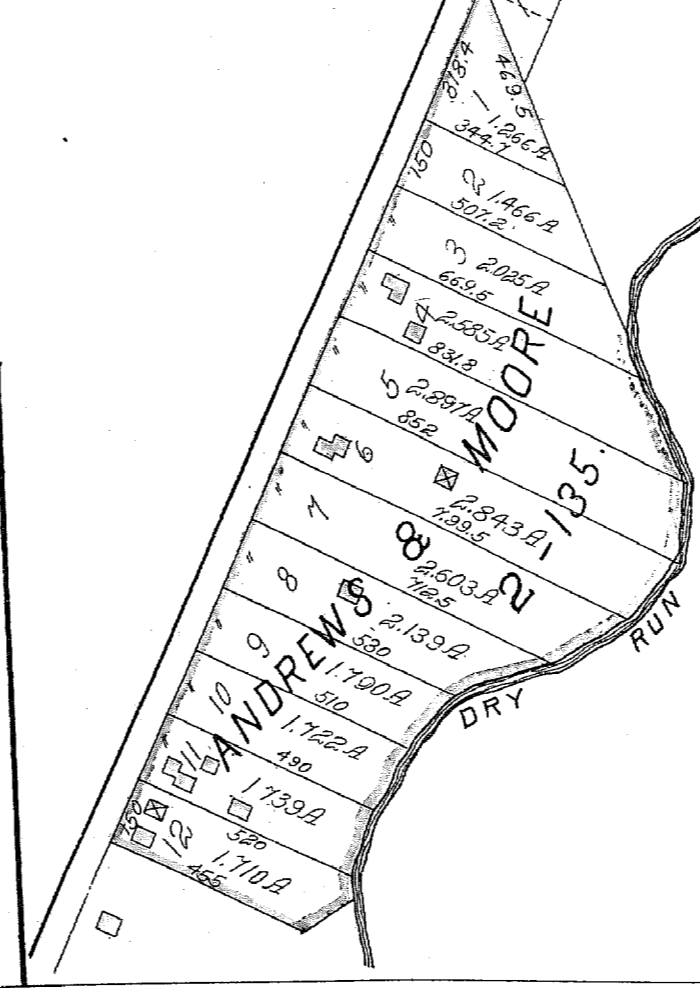 318.4
469.5
1
1.266A
344.7
150
2 1.466A
507.2'
"
3 2.025A
669.5
"
4 2.585A
831.8
"
5 2.897A
852
"
6
2.843A
799.5
"
7
2.603A
712.5
"
8
2.139A
530
"
9
1.790A
510
10
1.722A
490
11
1.739A
520
150
12
1.710A
455
ANDREWS & MOORE
2-135.
DRY RUN